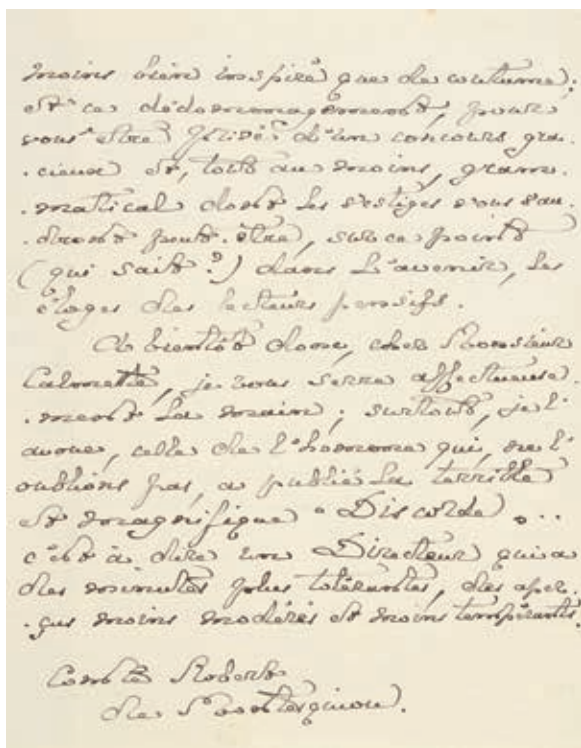 moins bien inspiré que de coutume;
et ce dédommagement, pour
vous être privé d'un concours gra-
-cieux et, tout au moins, gram-
-matical dont les vestiges vous vau-
-dront peut-être, sur ce point
(qui sait?) dans l'avenir, les
éloges des lecteurs pensifs.
A bientôt donc, cher Monsieur
Calmette, je vous serre affectueuse-
-ment la main; surtout, je l'
avoue, celle de l'homme qui, ne l'
oublions pas, a publié la terrible
et magnifique "Discorde"...
c'est à dire un Directeur qui a
des minutes plus tolérantes, des aper-
-çus moins modérés et moins tempérants.
Comte Robert
de Montesquiou.